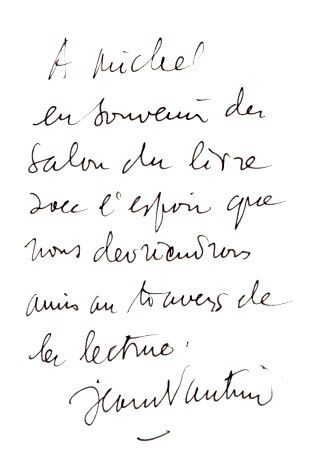 A Michel
en souvenir du
Salon du livre
avec l'espoir que
nous deviendrons
amis au travers de
la lecture.
Jean Vautrin